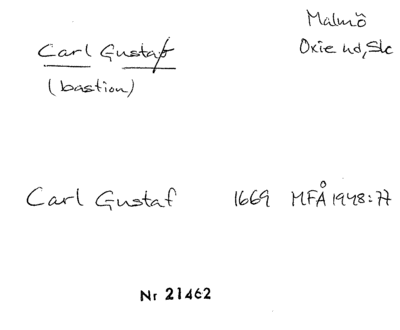 Malmö
Oxie hd, Sk
Carl Gustaf
(bastion)
Carl Gustaf 1669 MFÅ 1948:77
Nr 21462